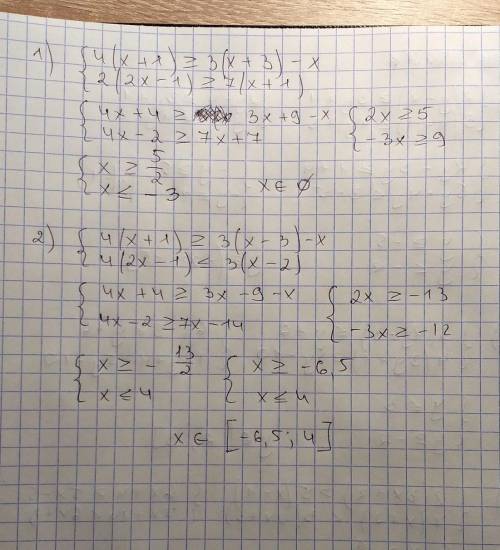 1) { 4(x+1) ≥ 3(x+3) - x
{ 2(2x-1) ≥ 7(x+1)
{ 4x+4 ≥ 3x+9-x { 2x ≥ 5
{ 4x-2 ≥ 7x+7 { -3x ≥ 9
{ x ≥ 5/2
{ x ≤ -3 x ∈ ∅
2) { 4(x+1) ≥ 3(x-3) - x
{ 4(2x-1) ≤ 3(x-2)
{ 4x+4 ≥ 3x-9-x { 2x ≥ -13
{ 4x-2 ≥ 7x-14 { -3x ≥ -12
{ x ≥ -13/2 { x ≥ -6,5
{ x ≤ 4 { x ≤ 4
x ∈ [-6,5; 4]